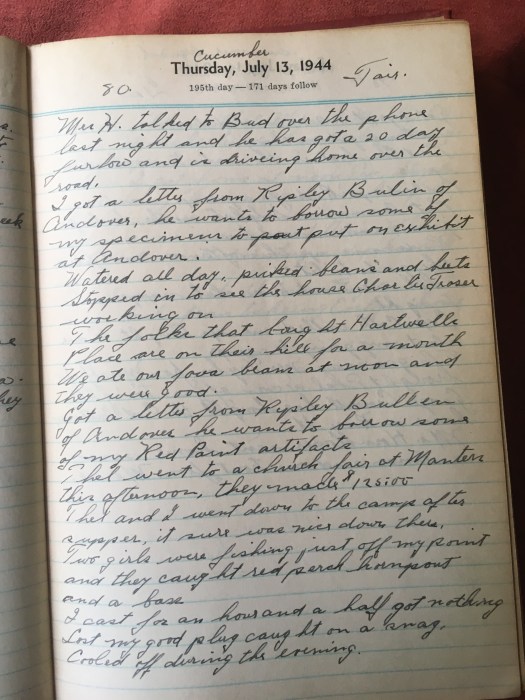 Cucumber
Thursday, July 13, 1944
80. 195th day — 171 days follow Fair.
Mrs H. talked to Bud over the phone
last night and he has got a 20 day
furlow and is driveing home over the
road.
I got a letter from Ripley Bulin of
Andover, he wants to borrow some of
my specimens to put on exhibit
at Andover.
Watered all day, picked beans and beets
Stopped in to see the house Charlie Fraser
working on
The folks that bought Hartwells
Place are on their hill for a month
We ate our fava beans at noon and
they were good.
Got a letter from Ripley Bullen
of Andover he wants to borrow some
of my Red Paint artifacts
Thel went to a church fair at Manters
this afternoon, they made $125.00
Thel and I went down to the camp after
supper, it sure was nice down there.
Two girls were fishing just off my point
and they caught red perch hornpout
and a bass
I cast for an hour and a half got nothing
Lost my good plug caught on a snag.
Cooled off during the evening.